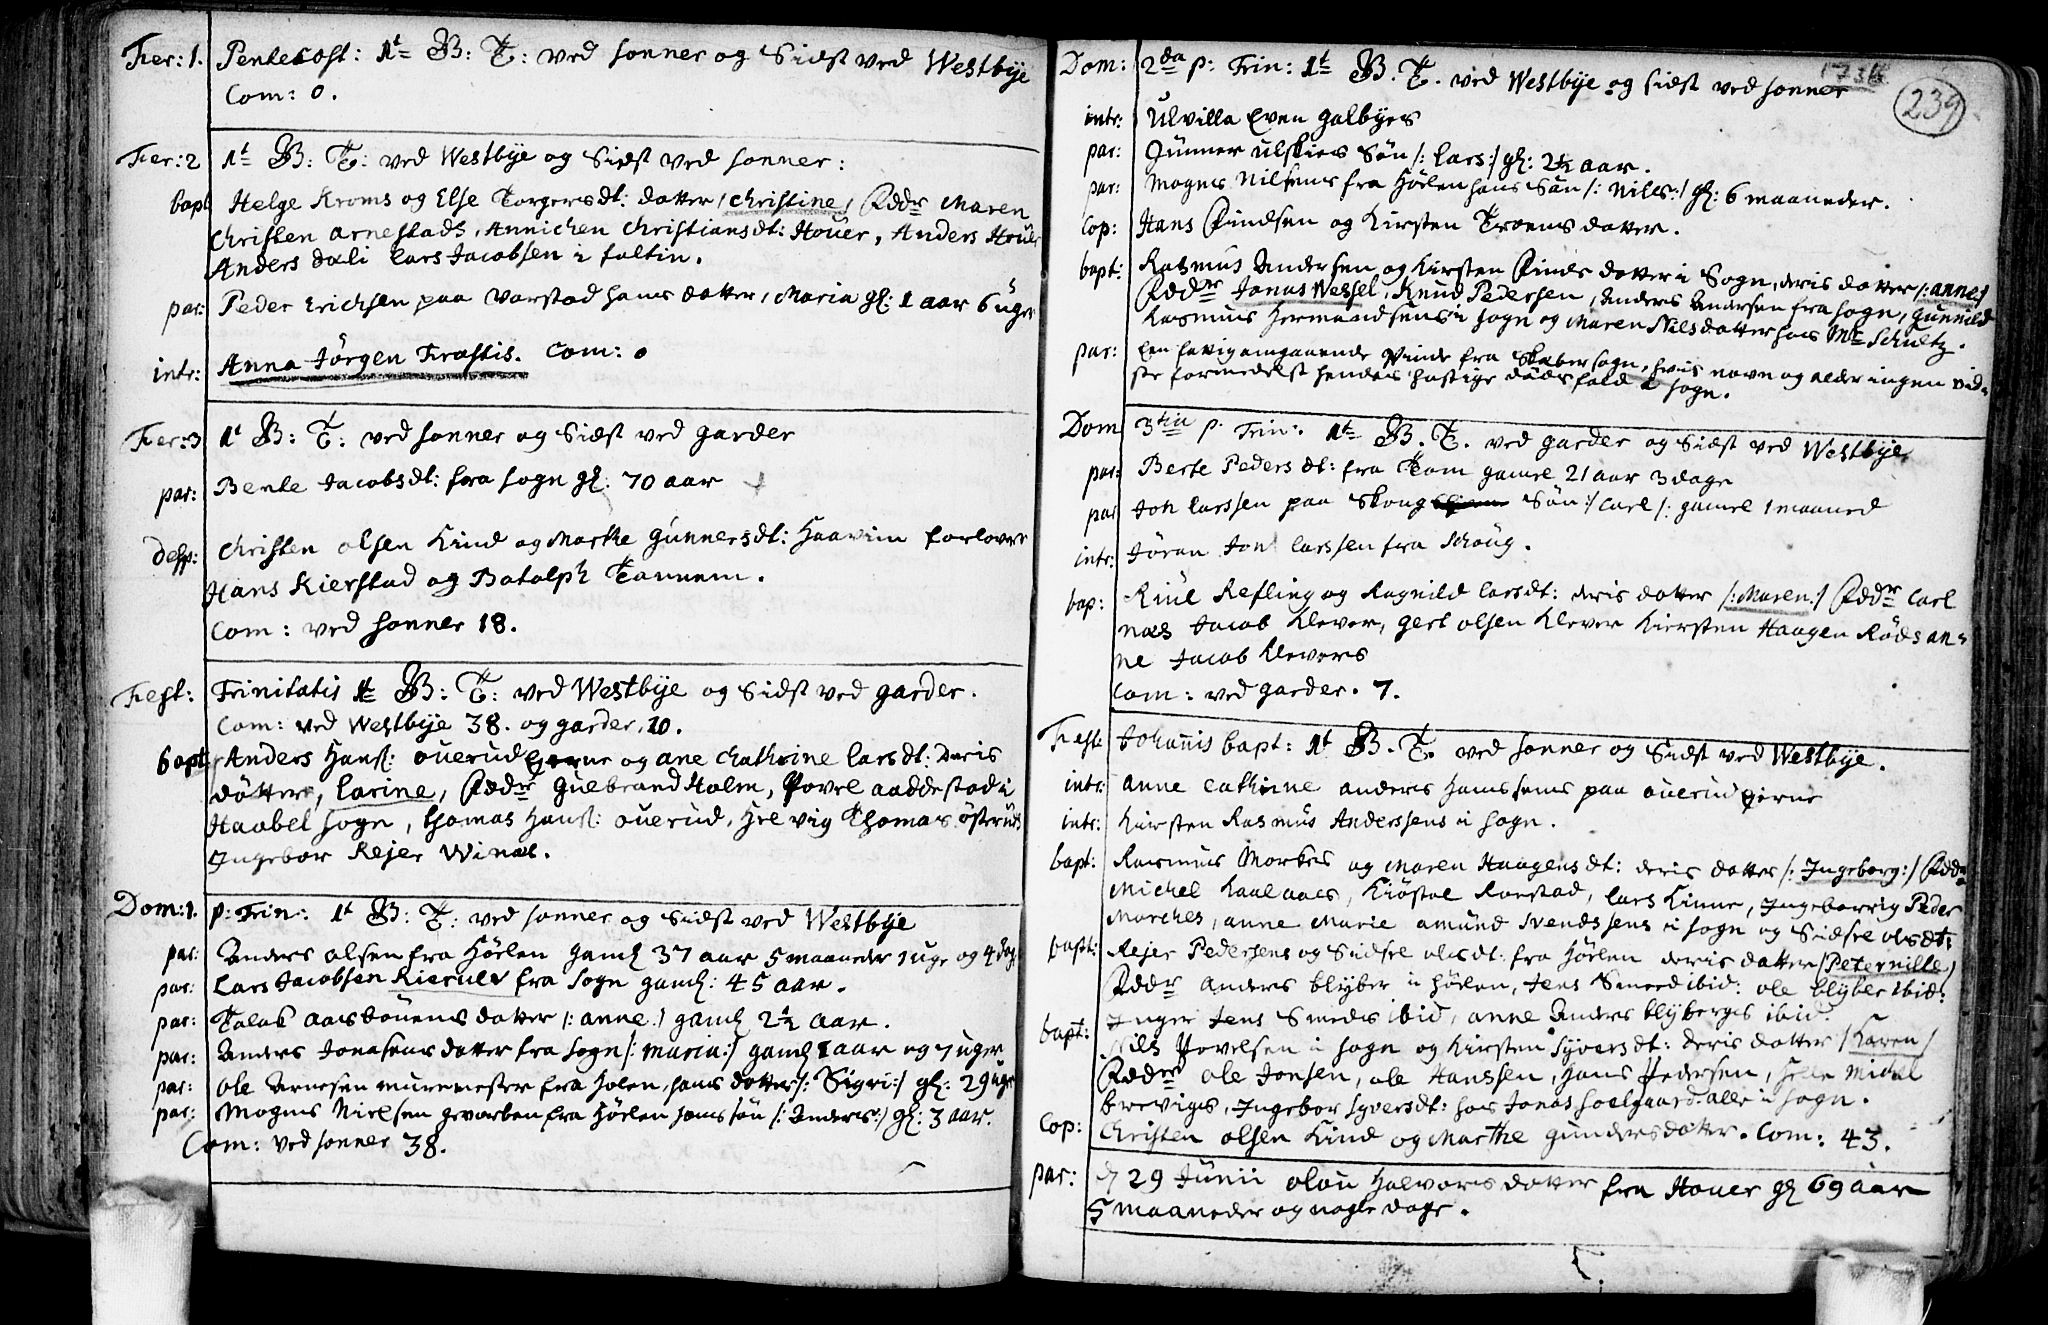 Fer: 1. Pentecost: 1t B: T: ved sonner og Sidst ved Westbÿe
Com: 0.
Fer: 2 1t B: T: ved Westbÿe og Sidst ved sonner:
bapt Helge Kroms og Else Torgersdt: datter / Christine / Fddr Maren
Christen Arnestads, Annichen Christiansdt: Houer, Anders Houer
Anders dali Lars Jacobsen i faltin.
par: Peder Erichsen paa Varstad hans datter, Maria gl: 1 aar 6 uger
intr: Anna Jörgen Træstis. Com: 0
Fer: 3 1t B: T: ved sonner og Sidst ved garder
par: Bente Jacobsdt: fra sogn gl: 70 aar
desp: Christen olsen Kind og Marthe Gunnersdt: Haavim forlovere
Hans Kierstad og Botolph Tannem.
Com: ved sonner 18.
Fest: Trinitatis 1t B: T: ved Westbÿe og Sidst ved garder.
Com: ved Westbÿe 38. og garder. 10.
bapt Anders Hans: ouerud Eierne og ane Chathrine larsdt: deris
dötter, Larine, Fddr Gulbrand Holm, Povel aaddestad i
Haabel sogn, Thomas Hans: ouerud, Helvig Thomas österuds
Ingebor Rejer Winæs.
Dom: 1. p: Trin: 1t B: T: ved sonner og Sidst ved Westbÿe
par: Anders olsen fra Hölen gaml 37 aar 5 maaneder 1 uge og 4 dag.
par: Lars Jacobsen Kierulv fra sogn gaml: 45 aar.
par: Talak aasbouens datter /: anne :/ gaml 2½ aar.
par: Anders Jonasens datter fra sogn /: Maria :/ gaml 1 aar og 7 uger
par: ole Arnesen murmester fra Holen, hans datter /: Sigri :/ gl: 29 uger
par: Mogens Nielsen gevorben fra Hörlen hans sön /: Anders :/ gl: 3 aar.
Com: ved sonner 38.
1736
239
Dom: 2da p: Trin: 1t B. T. ved Westbÿe og sidst ved sonner
intr: Ulvilla Even galbÿes
par: Gunner ulskies Sön /: Lars :/ gl: 2½ aar.
par: Mogens Nilsens fra Hörlen hans Sön /: Nills :/ gl: 6 maaneder.
Cop: Hans Findsen og Kirsten Troens datter.
bapt: Rasmus Andersen og Kirsten Finds datter i Sogn, deris datter /: anne /
Fddr Jonas Wessel, Knud Pedersen, Anders Anersen fra sogn, Gunnild
Rasmus Hermandsens i sogn og Maren Nilsdatter hos Mr Schultz.
par: Een fattig omgaaende Qvinde fra Skibersogn, hvis navn og alder ingen vid-
ste formedelst hendes hastige dödsfald i sogn.
Dom 3tia p. Trin: 1t B. T. ved garder og Sidst ved Westbÿe
par: Berte Peders dt: fra Tom gamel 21 aar 3 dage
par Joh Larssen paa Skoug Sön :/ Carl /: gamel 1 maaned
intr: Jöran Joh Larssen fra Schoug.
bap: Kiul Refling og Ragnild larsdt: deris datter /: Maren :/ Fddr Carl
næs Jacob Klever, gert olsen Klever Kiersten Haagen Röds an-
ne Jacob Klevers
Com: ved garder. 7.
Feste Johannis bapt: 1t B. T. ved sonner og Sidst ved Westbÿe.
intr: Anne Cathrine anders Hanssens paa ouerud Eierne
intr: Kirsten Rasmus Anderssens i sogn.
bapt: Rasmus Morkes og Maren Haagens dt: deris datter /: Ingeborg :/ Fddr
Michel Kaalaas, Kiöstol Rorstad, Lars Kinne, Ingeborrig Peder
Morches, anne Marie amund Svendssens i sogn og Sidsel olsdt:
bapt: Rejer Pedersens og Sidsel olsdt: fra Hörlen deris datter / Peternille /
Fddr Anders blÿber i hörlen, Jens Smed ibid: ole blÿber ibid:
Inger Jens Smeds ibid, anne Anders blÿbergs ibid.
bapt: Nils Povelsen i sogn og Kirsten Syversdt: deris datter / Karen /
Fddr ole Jonsen, ole Hanssen, Hans Pedersen, Helle Michel
brevigs, Ingebor Syversdt: hos Jonas soelgaard. alle i sogn.
Cop: Christen olsen Kind og Marthe gunders datter. Com: 43.
par: d 29 Junii olou Halvors datter fra Houer gl 69 aar
5 maaneder og nogle dage.